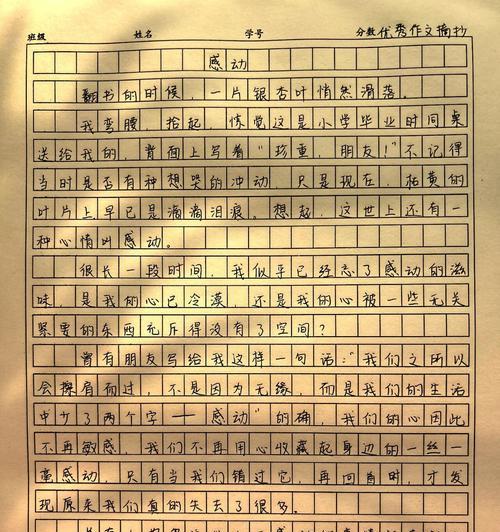 班级 姓名 学号 分数 优秀作文摘抄
感动
翻书的时候，一片银杏叶悄然滑落。
我弯腰，拾起，惊觉这是小学毕业时同桌
送给我的，背面上写着“珍重，朋友！”不记得
当时是否有种想哭的冲动，只是现在，枯黄的
叶片上早已是滴滴泪痕。想起，这世上还有一
种心情叫感动。
很长一段时间，我似乎已经忘了感动的滋
味，是我的心已冷漠，还是我的心被一些无关
紧要的东西充斥得没有了空间？
曾有朋友写给我这样一句话：“我们之所以
会擦肩而过，不是因为无缘，而是我们的生活
中少了两个字——感动”的确，我们的心因此
不再敏感，我们不再用心收藏起身边的一丝一
毫感动，只有当我们错过它，再回首时，才发
现原来我们真的失去了很多。